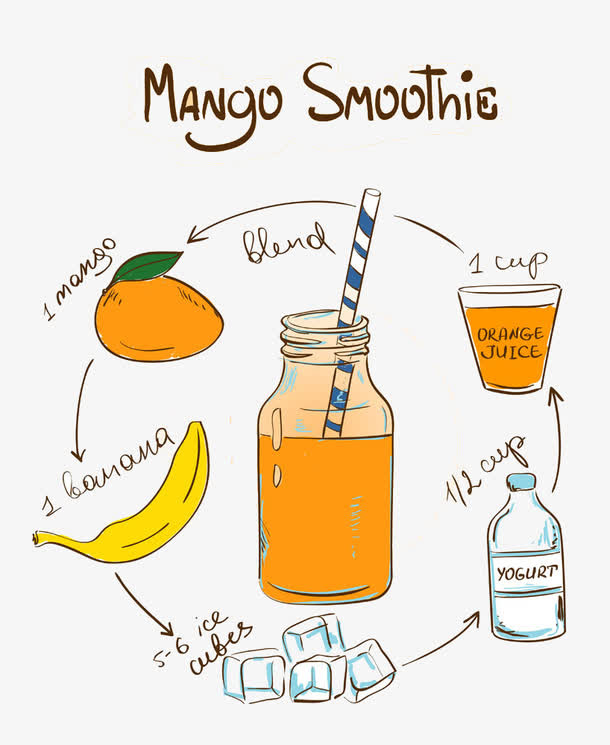 Mango Smoothie
Blend
1 mango
1 banana
5-6 ice
cubes
1/2 cup
YOGURT
1 cup
ORANGE
JUICE